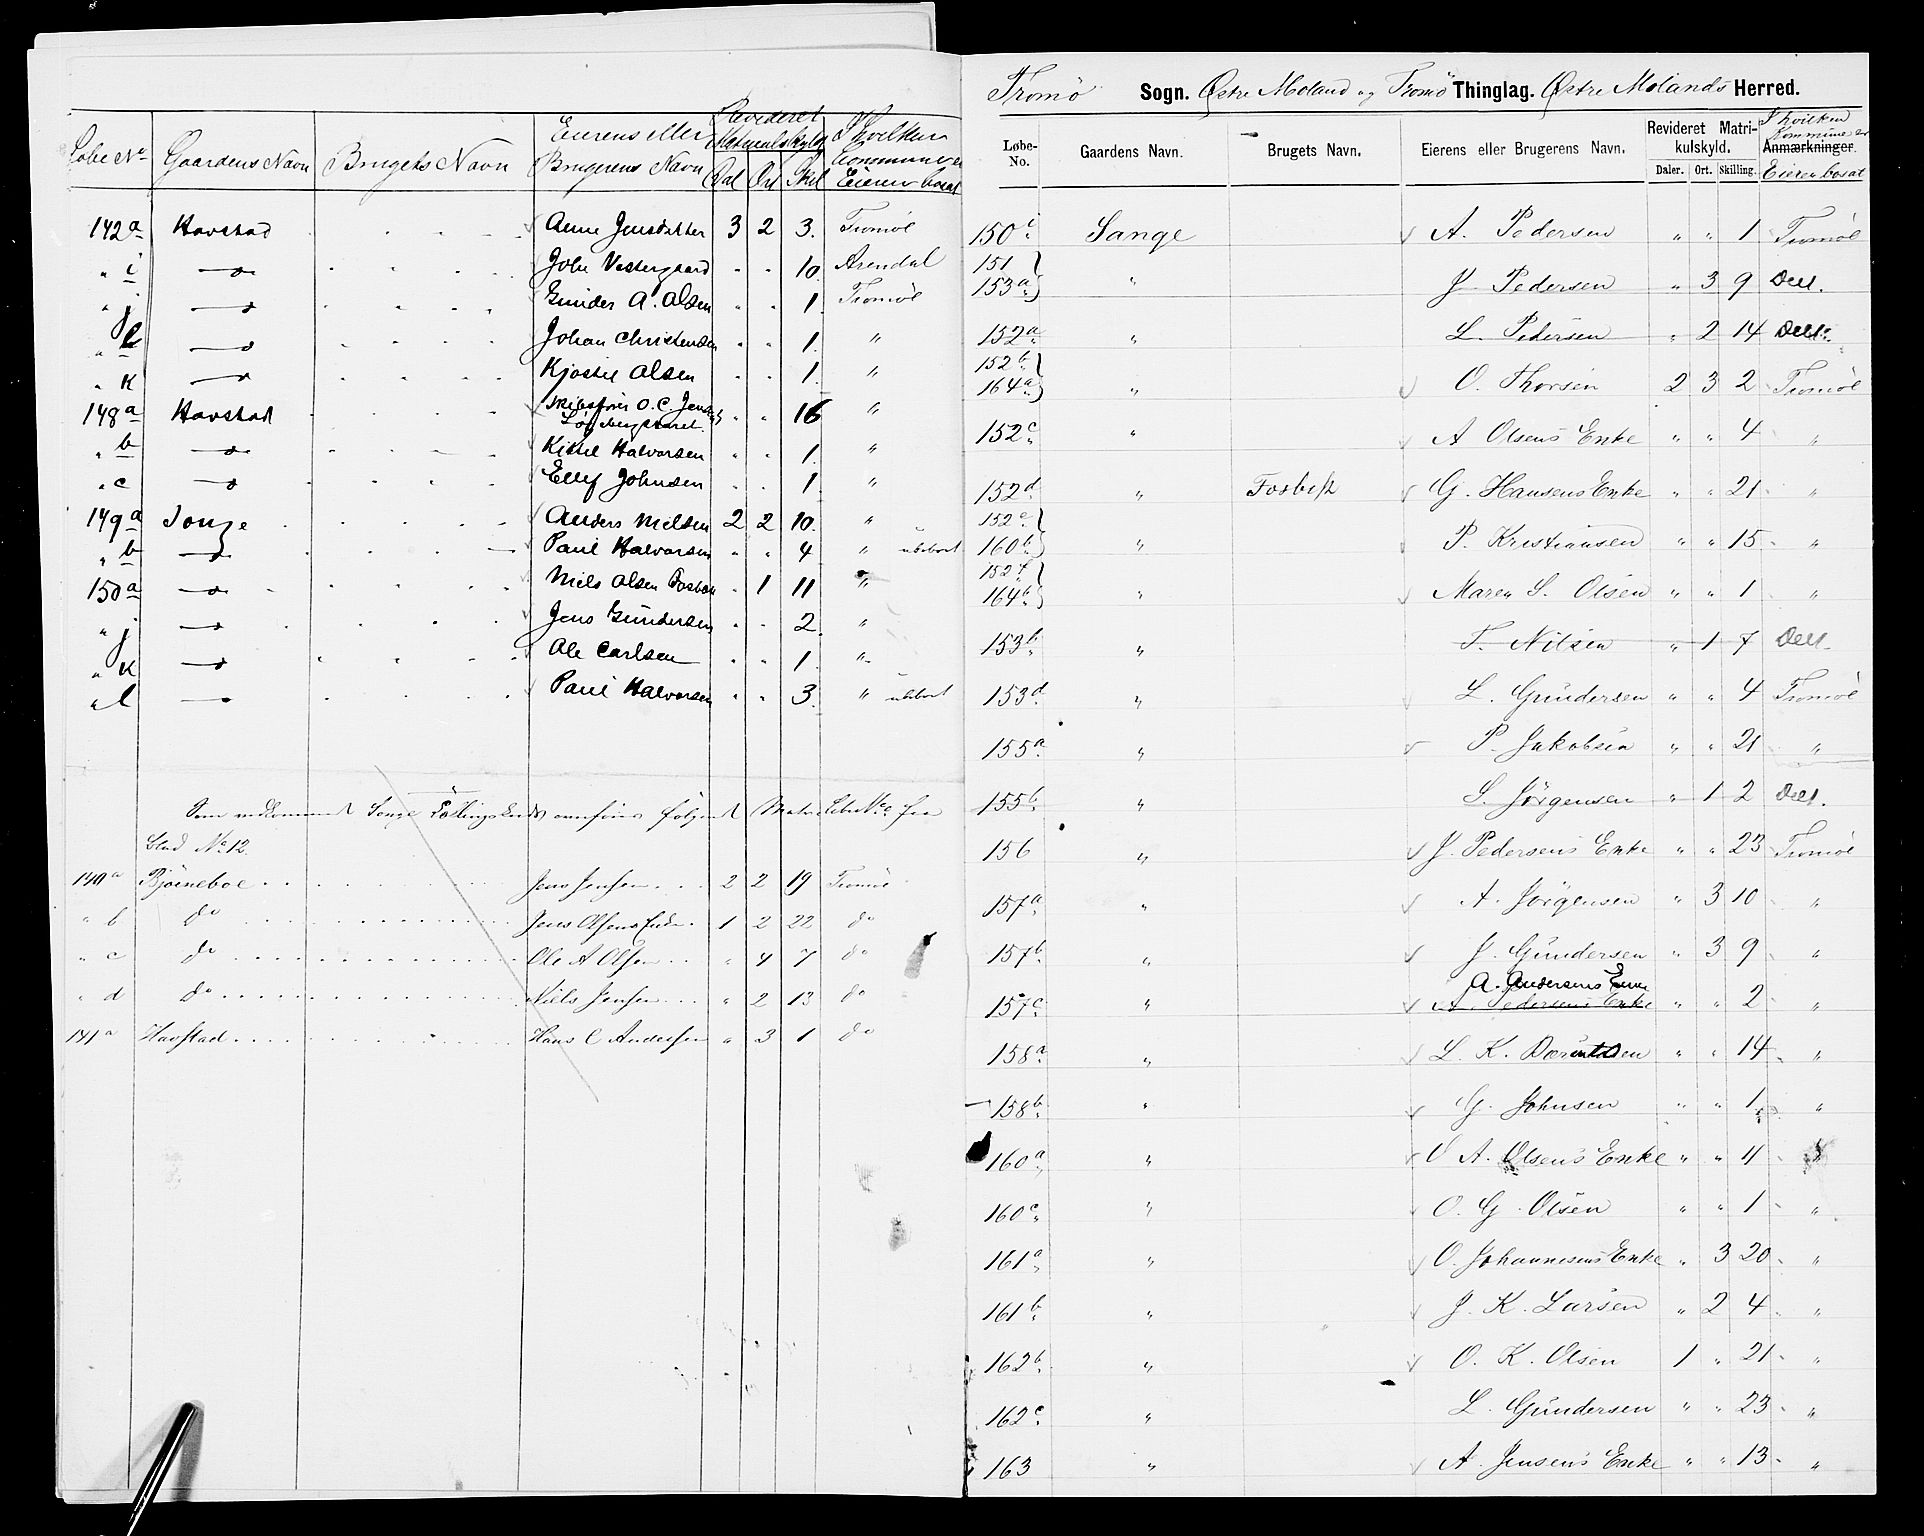 Løbe No. Gaardens Navn Brugets Navn Eierens eller Brugerens Navn Revideret Matrikulskyld Dal Ort Skil I hvilken Kommune er Eieren bosat
142 a Havstad Anne Jensdatter 3 2 3. Tromöe
" i —"— John Vestergaard " " 10 Arendal
" j —"— Gunder A. Olsen " " 1 Tromöe
" —"— Johan Christensen " " 1. "
" k —"— Kjøstil Olsen " " 1. "
148 a Havstad Skibsfører O. C. Jensen " " 16 "
" b —"— Kittil Halvorsen " " 1. "
" c —"— Ellef Johnsen " " 1. "
149 a Songe Anders Nielsen 2 2 10. "
" b —"— Paul Halvorsen " " 4 " ubebort
150 a —"— Niels Olsen Fosbæk " 1 11 "
" j —"— Jens Gundersen " " 2. "
" k —"— Ole Carlsen " " 1. "
" l —"— Paul Halvorsen " " 3. " ubebort
Som vedkommende Songe Tællingskreds anføres følgende Matr. Løbe No. fra
Blad No. 12.
140 a Bjørneboe Jens Jensen 2 2 19 Tromöe
" b do Jens Olsens Enke 1 2 22 do
" c do Ole A Olsen " 4 7 do
" d do Niels Jensen " 2 13 do
141 a Havstad Hans C Andersen " 3 1 do
Tromö Sogn. Østre Moland og Tromö Thinglag. Østre Molands Herred.
Løbe-No. Gaardens Navn. Brugets Navn. Eierens eller Brugerens Navn. Revideret Matrikulskyld. Daler. Ort. Skilling. Anmærkninger. I hvilken Kommune er Eieren bosat
150 i Sange A. Pedersen " " 1 Tromöe
151
153 a " J. Pedersen " 3 9 Delt.
152 a " L. Pedersen " 2 14 Delt.
152 b
164 a " O. Thorsen 2 3 2 Tromöe
152 c " A Olsens Enke " " 4 "
152 d " Fosbek G. Hansens Enke " " 21 "
152 e
160 b " P. Kristiansen " " 15 "
152 f
164 b " Maren S. Olsen " " 1 "
153 b " T. Nilsen " 1 7 Delt.
153 d " L. Gundersen " " 4 Tromöe
155 a " P. Jakobsen " " 21 "
155 b " S. Jörgensen " 1 2 Delt.
156 " J. Pedersens Enke " " 23 Tromöe
157 a " A. Jörgensen " 3 10 "
157 b " J. Gundersen " 3 9 "
A. Andersens Enke
157 c " A. Pedersens Enke " " 2 "
158 a " L. K. Berntsen " " 14 "
158 b " G. Johnsen " " 1 "
160 a " O A. Olsens Enke " " 4 "
160 c " O. G. Olsen " " 1 "
161 a " O. Johannesens Enke " 3 20 "
161 b " J. K. Larsen " 2 4 "
162 b " O. K. Olsen 1 " 21 "
162 c " L. Gundersen " " 23 "
163 " A. Jensens Enke " " 13 "